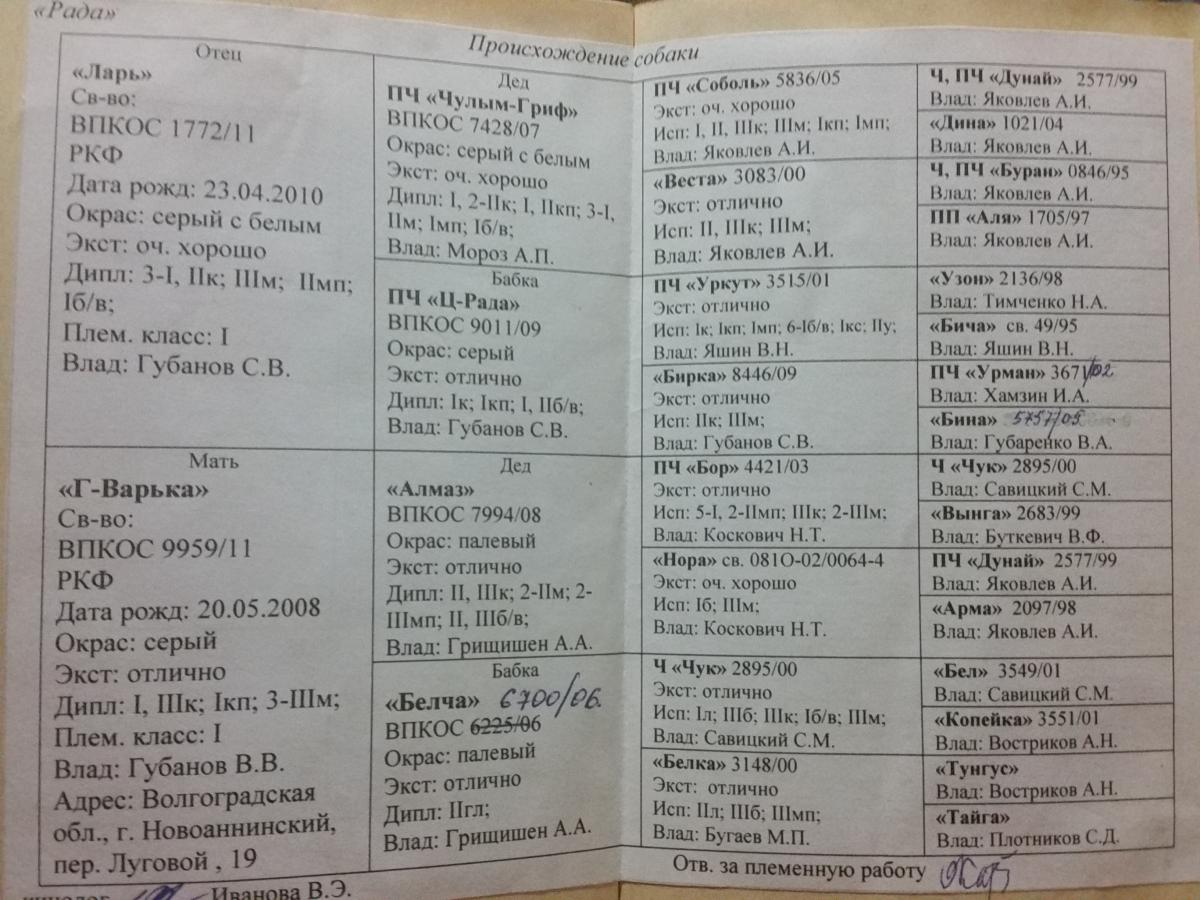 «Рада»
Происхождение собаки
Отец
«Ларь»
Св-во:
ВПКОС 1772/11
РКФ
Дата рожд: 23.04.2010
Окрас: серый с белым
Экст: оч. хорошо
Дипл: 3-I, IIк; IIIм; IIмп;
Iб/в;
Плем. класс: I
Влад: Губанов С.В.
Мать
«Г-Варька»
Св-во:
ВПКОС 9959/11
РКФ
Дата рожд: 20.05.2008
Окрас: серый
Экст: отлично
Дипл: I, IIIк; Iкп; 3-IIIм;
Плем. класс: I
Влад: Губанов В.В.
Адрес: Волгоградская
обл., г. Новоаннинский,
пер. Луговой , 19
Дед
ПЧ «Чулым-Гриф»
ВПКОС 7428/07
Окрас: серый с белым
Экст: оч. хорошо
Дипл: I, 2-IIк; I, IIкп; 3-I,
IIм; Iмп; Iб/в;
Влад: Мороз А.П.
Бабка
ПЧ «Ц-Рада»
ВПКОС 9011/09
Окрас: серый
Экст: отлично
Дипл: Iк; Iкп; I, IIб/в;
Влад: Губанов С.В.
Дед
«Алмаз»
ВПКОС 7994/08
Окрас: палевый
Экст: отлично
Дипл: II, IIIк; 2-IIм; 2-
IIIмп; II, IIIб/в;
Влад: Грищишен А.А.
Бабка
«Белча» 6700/06.
ВПКОС 6225/06
Окрас: палевый
Экст: отлично
Дипл: IIгл;
Влад: Грищишен А.А.
ПЧ «Соболь» 5836/05
Экст: оч. хорошо
Исп: I, II, IIIк; IIIм; Iкп; Iмп;
Влад: Яковлев А.И.
«Веста» 3083/00
Экст: отлично
Исп: II, IIIк; IIIм;
Влад: Яковлев А.И.
ПЧ «Уркут» 3515/01
Экст: отлично
Исп: Iк; Iкп; Iмп; 6-Iб/в; Iкс; IIу;
Влад: Яшин В.Н.
«Бирка» 8446/09
Экст: отлично
Исп: IIк; IIIм;
Влад: Губанов С.В.
ПЧ «Бор» 4421/03
Экст: отлично
Исп: 5-I, 2-IIмп; IIIк; 2-IIIм;
Влад: Коскович Н.Т.
«Нора» св. 081О-02/0064-4
Экст: оч. хорошо
Исп: Iб; IIIм;
Влад: Коскович Н.Т.
Ч «Чук» 2895/00
Экст: отлично
Исп: Iл; IIIб; IIIк; Iб/в; IIIм;
Влад: Савицкий С.М.
«Белка» 3148/00
Экст: отлично
Исп: IIл; IIIб; IIIмп;
Влад: Бугаев М.П.
Ч, ПЧ «Дунай» 2577/99
Влад: Яковлев А.И.
«Дина» 1021/04
Влад: Яковлев А.И.
Ч, ПЧ «Буран» 0846/95
Влад: Яковлев А.И.
ПП «Аля» 1705/97
Влад: Яковлев А.И.
«Узон» 2136/98
Влад: Тимченко Н.А.
«Бича» св. 49/95
Влад: Яшин В.Н.
ПЧ «Урман» 3671/02
Влад: Хамзин И.А.
«Бина» 5757/05
Влад: Губаренко В.А.
Ч «Чук» 2895/00
Влад: Савицкий С.М.
«Вынга» 2683/99
Влад: Буткевич В.Ф.
ПЧ «Дунай» 2577/99
Влад: Яковлев А.И.
«Арма» 2097/98
Влад: Яковлев А.И.
«Бел» 3549/01
Влад: Савицкий С.М.
«Копейка» 3551/01
Влад: Востриков А.Н.
«Тунгус»
Влад: Востриков А.Н.
«Тайга»
Влад: Плотников С.Д.
Отв. за племенную работу
Иванова В.Э.